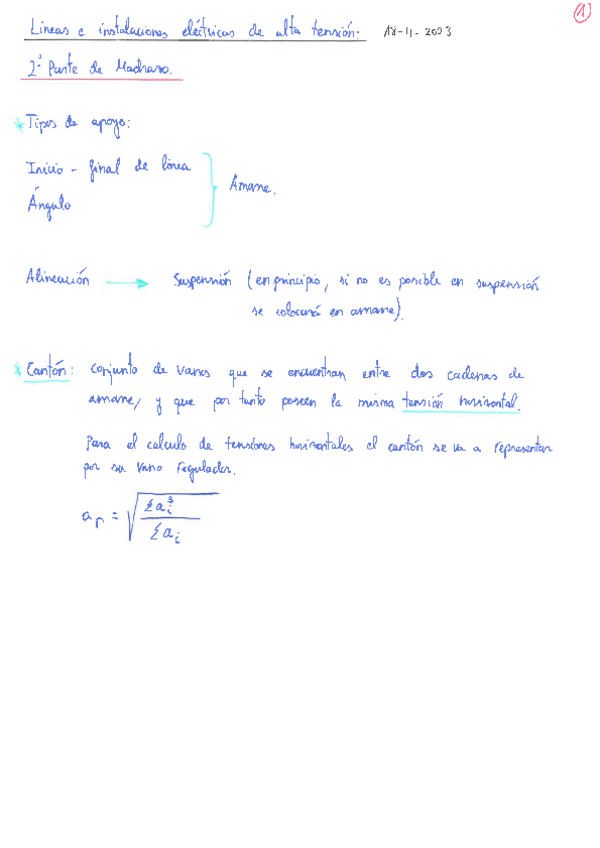 1
Líneas e instalaciones eléctricas de alta tensión: 18-11-2023
2ª Parte de Madrazo.
* Tipos de apoyo:
Inicio - final de línea
Ángulo
Amarre.
Alineación → Suspensión (en principio, si no es posible en suspensión
se colocará en amarre).
* Cantón: conjunto de vanos que se encuentran entre dos cadenas de
amarre, y que por tanto poseen la misma tensión horizontal.
Para el calculo de tensiones horizontales el cantón se va a representar
por su vano regulador.
a_r = √(Σa_i³ / Σa_i)